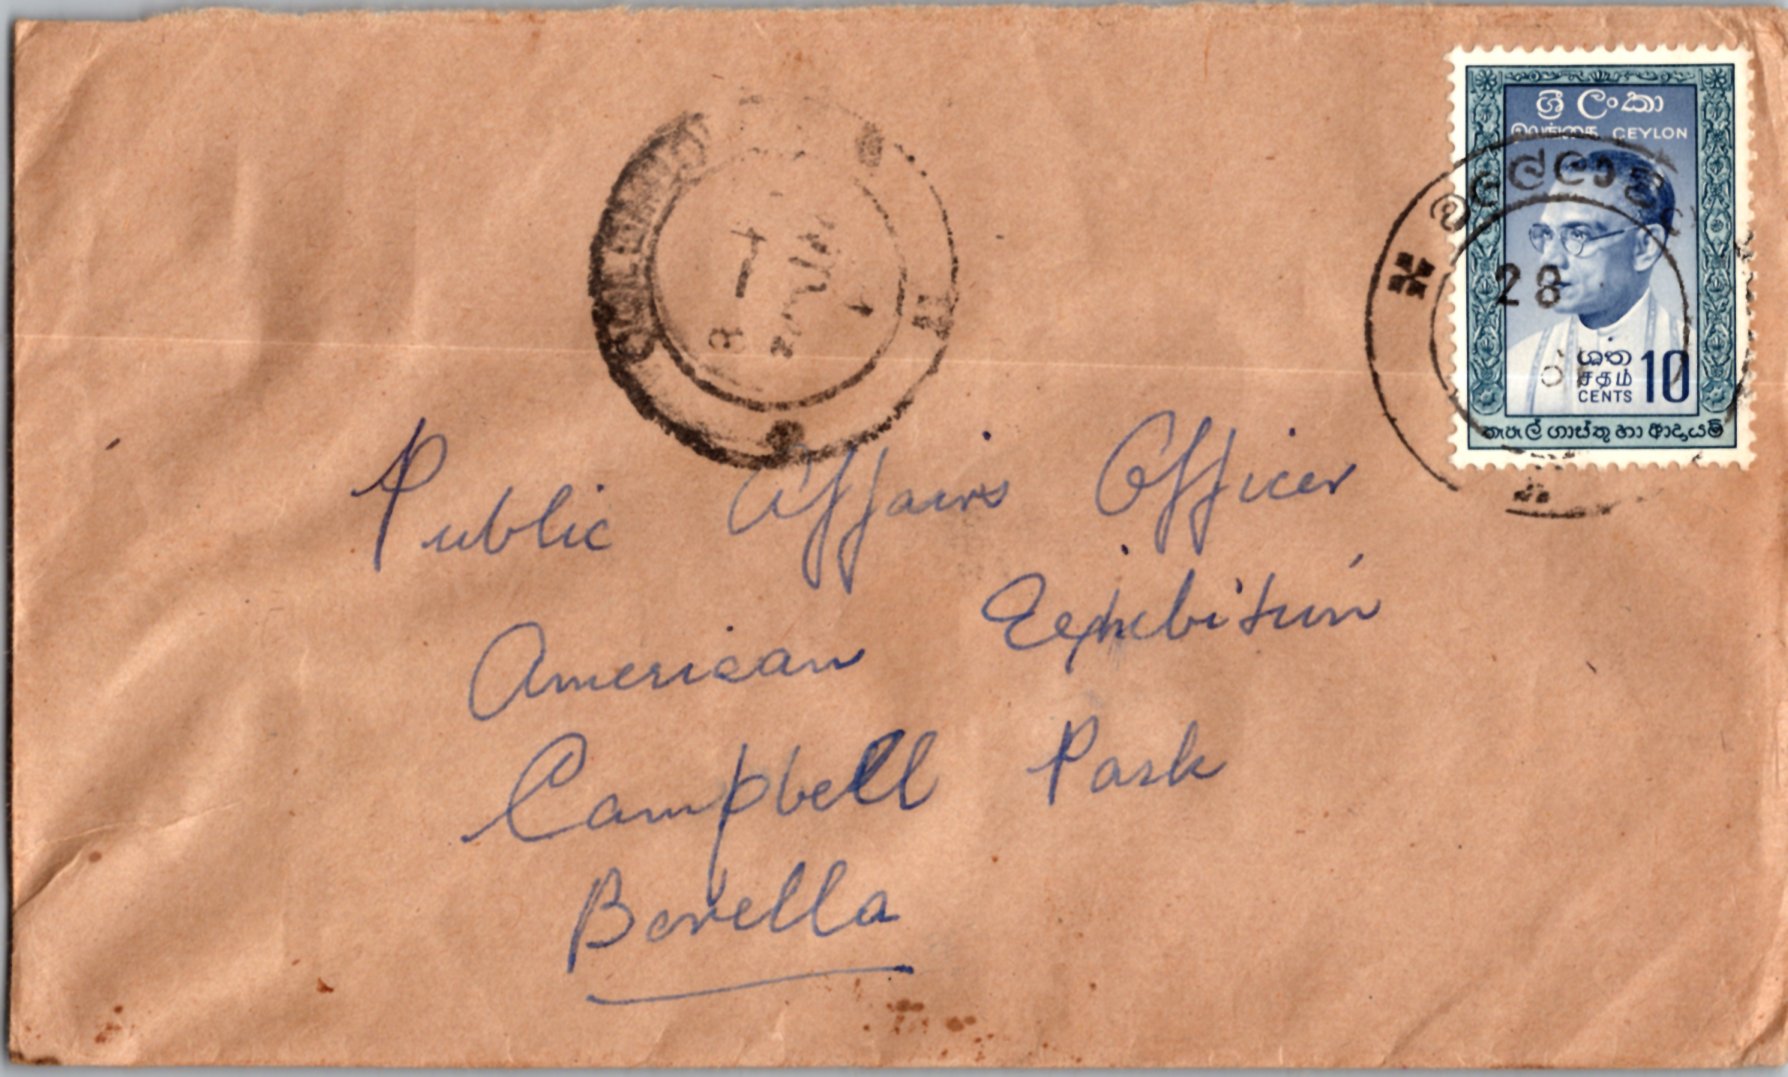 ශ්‍රී ලංකා
இலங்கை CEYLON
28
ශත
சதம்
CENTS 10
තැපැල් ගාස්තු හා ආදායම්
Public Affairs Officer
American Exhibition
Campbell Park
Borella